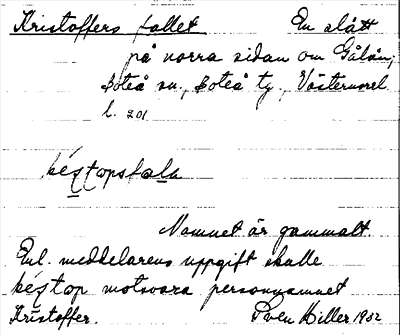 Kristoffers fallet En slått
på norra sidan om Gålån,
Boteå sn., Boteå tg., Västernorrl
l. 201
késtopsfala
Namnet är gammalt.
Enl. meddelarens uppgift skulle
késtop motsvara personnamnet
Kristoffer. Sven Hiller 1932